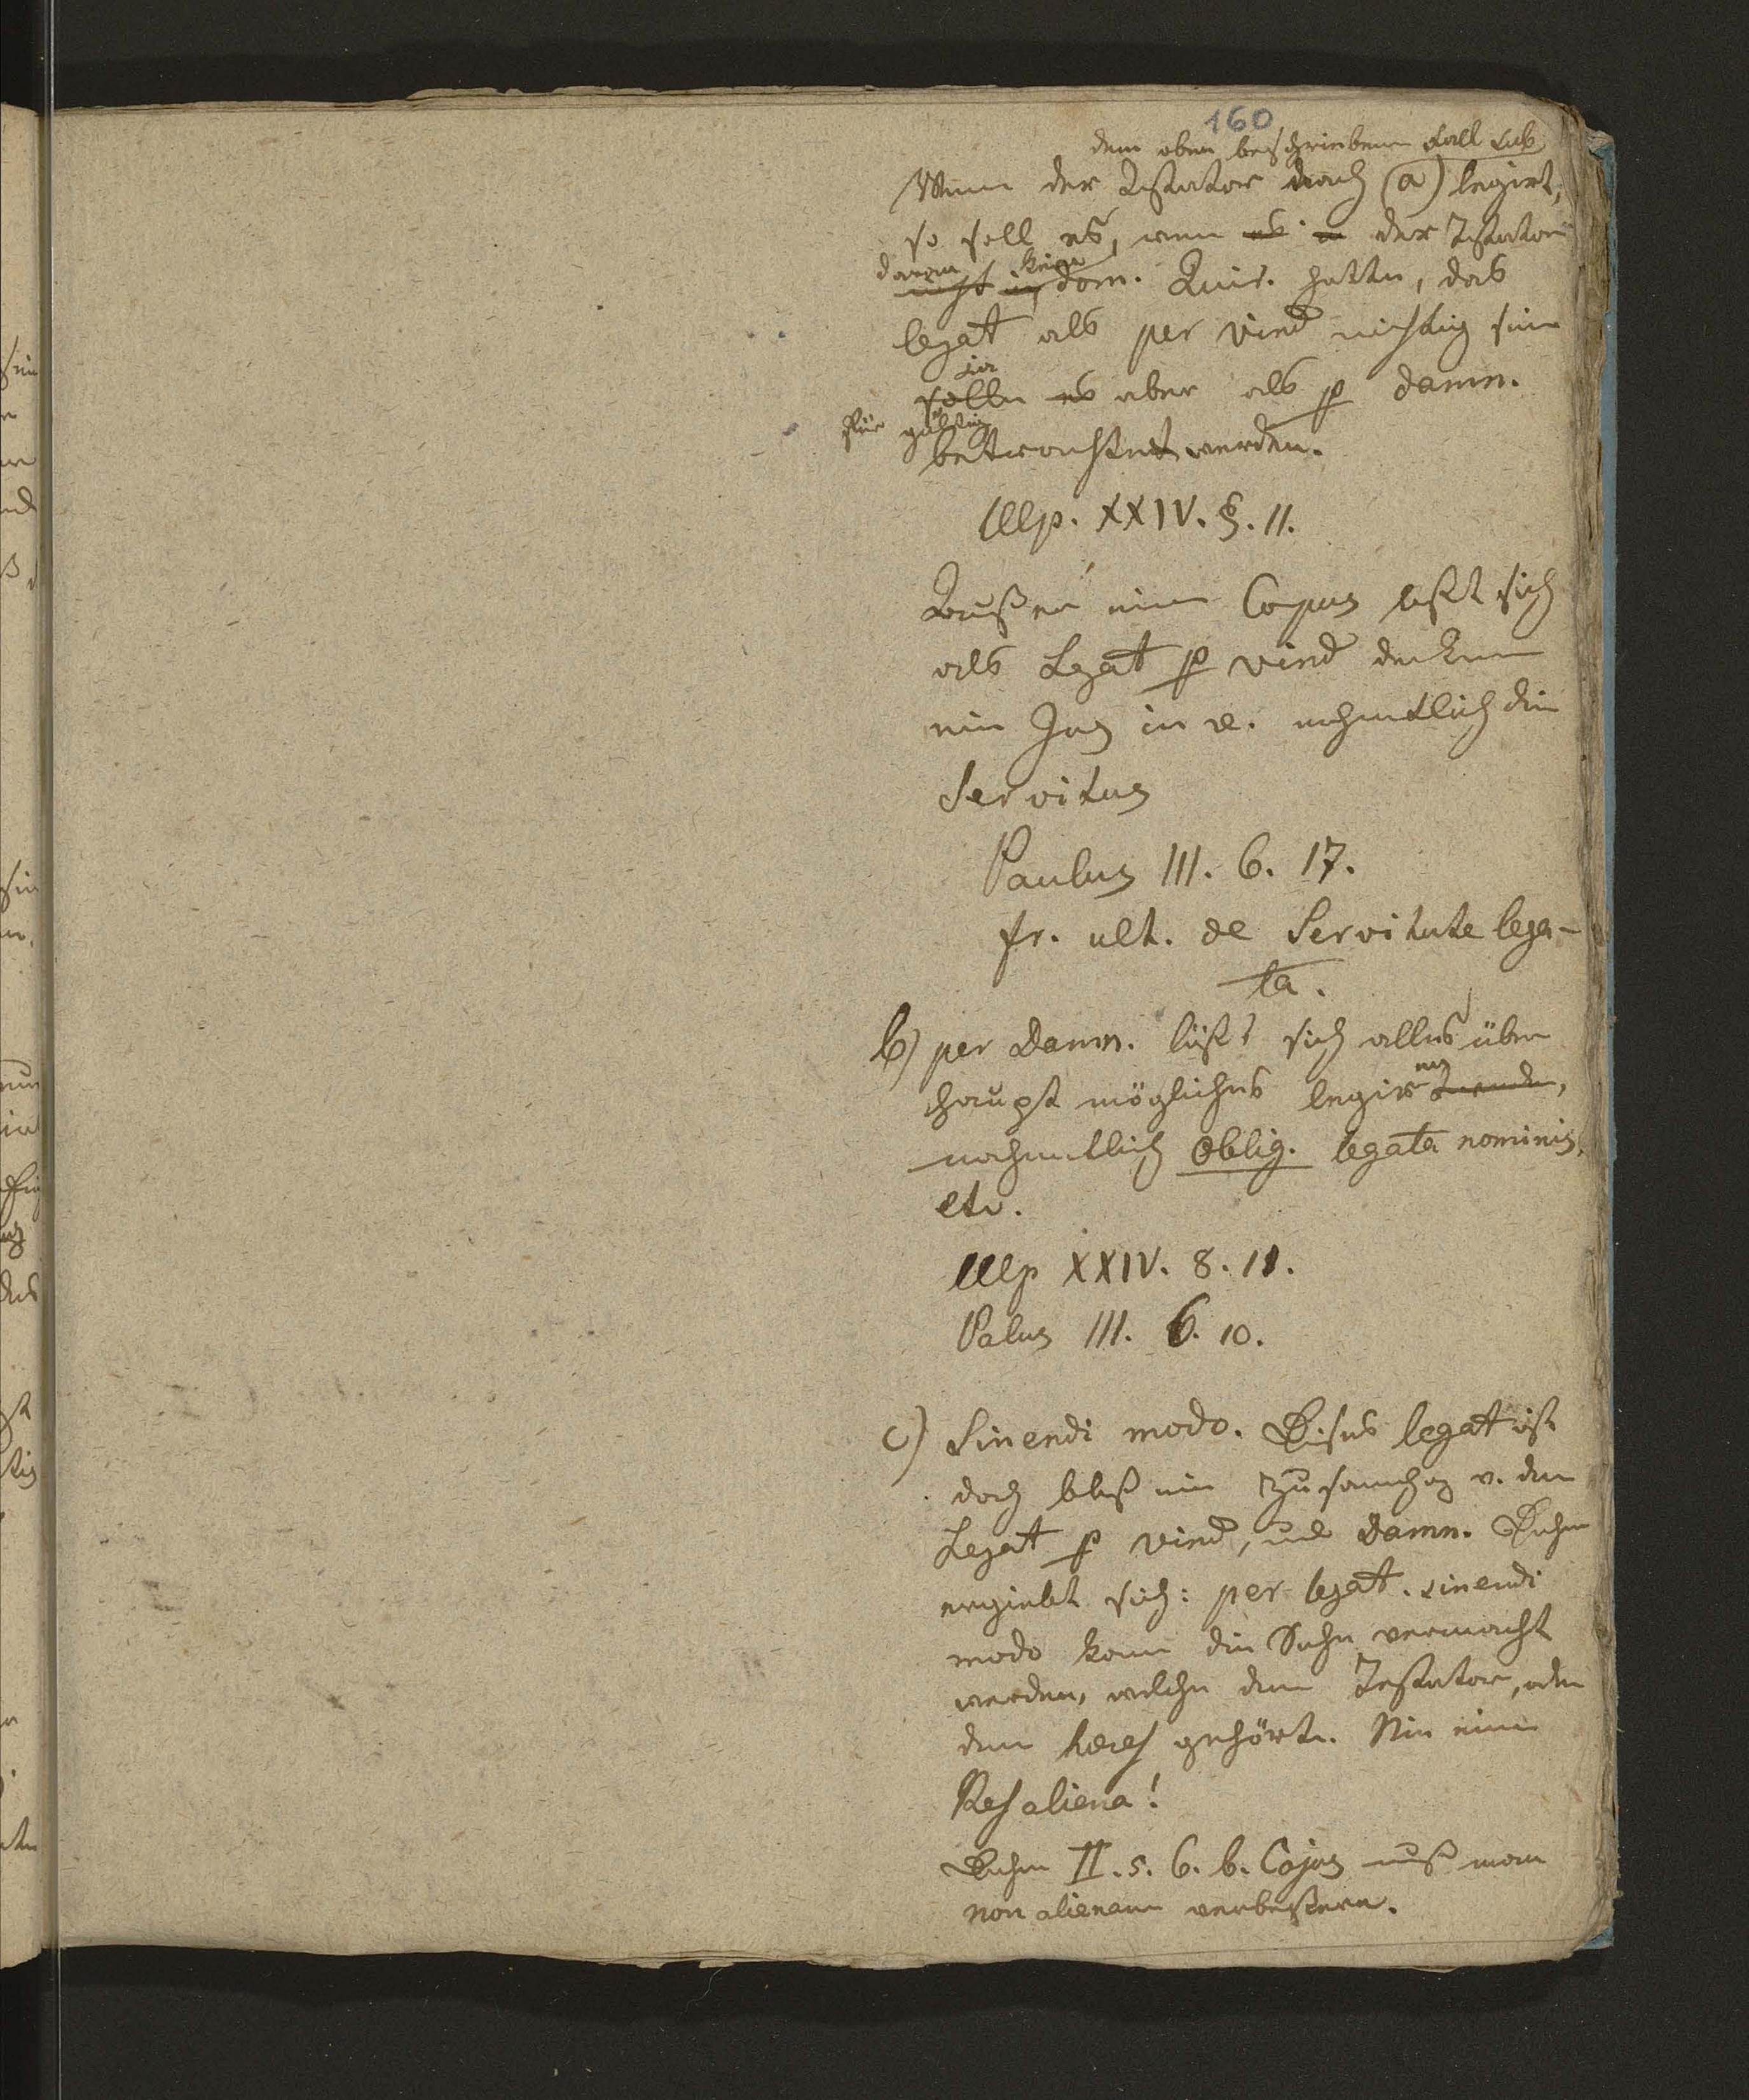 160
dem oben beschriebenen Fall sub
Wenn der Testator nach (a) legirt,
so soll es, wenn es in der Testator
daran kein
nicht in dom. Quir. hatte, das
legat als per vind nichtig sein
sia
solle es aber als p damn.
für gültig
betrachtet werden.
Ulp. XXIV. §. 11.
Außer einem Corpus läßt sich
als Legat p vind denken
ein Jus in re. nahmentlich die
Servitus
Paulus III. 6. 17.
fr. ult. de Servitute lega-
ta.
b) per Damn. läßt sich alles über
haupt mögliche legiren
nahmentlich Oblig. legata nominis.
etc.
Ulp XXIV. 8. 11.
Palus III. 6. 10.
c) Sinendi modo. Dieses legat ist
doch bloß ein v. dem
Legat p vind, und Damn. Daher
ergiebt sich: per legat. sinendi
modo kann die Sache vermacht
werden, welche dem Testator, oder
dem heres gehört. Nie eine
Res aliena!
Daher II. 5. 6. b. Cajus muß man
non alienam verbeßern.